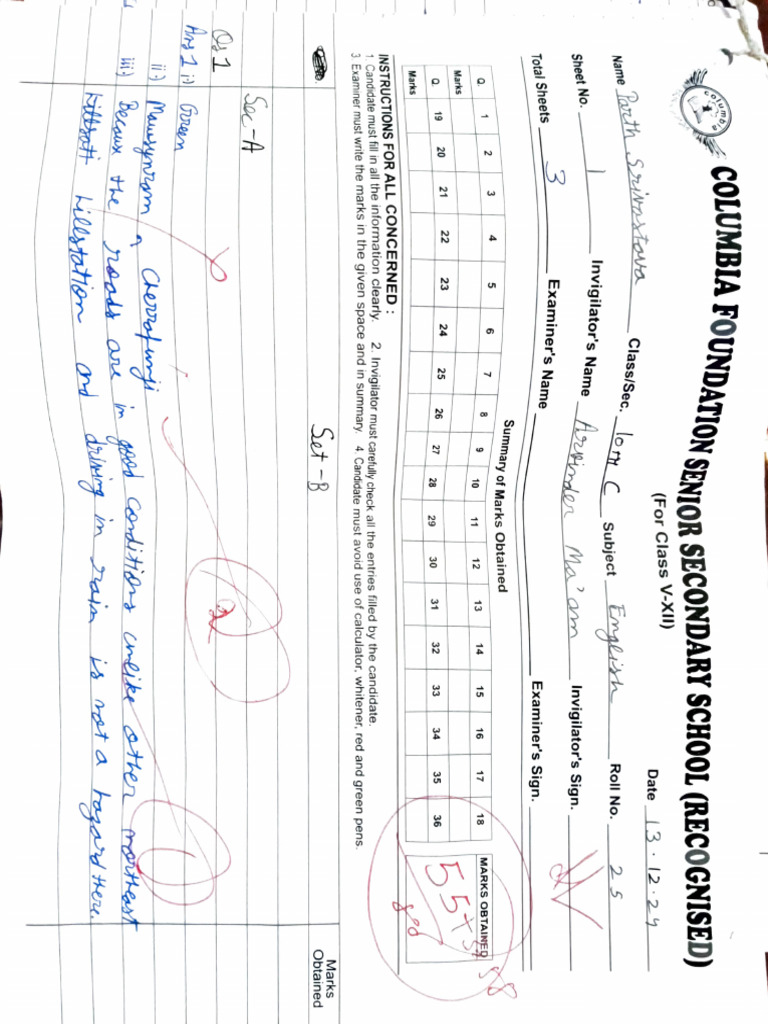 COLUMBIA FOUNDATION SENIOR SECONDARY SCHOOL (RECOGNISED)
(For Class V-XII)
Date 13.12.24
Name Parth Srivastava Class/Sec. 10th C Subject English Roll No. 25
Sheet No. 1 Invigilator's Name Arvinder Ma'am Invigilator's Sign.
Total Sheets 3 Examiner's Name Examiner's Sign.
Summary of Marks Obtained
Q. 1 2 3 4 5 6 7 8 9 10 11 12 13 14 15 16 17 18 MARKS OBTAINED
Marks
Q. 19 20 21 22 23 24 25 26 27 28 29 30 31 32 33 34 35 36
Marks
55+
INSTRUCTIONS FOR ALL CONCERNED :
1. Candidate must fill in all the information clearly. 2. Invigilator must carefully check all the entries filled by the candidate.
3. Examiner must write the marks in the given space and in summary. 4. Candidate must avoid use of calculator, whitener, red and green pens.
Marks Obtained
Set-B
Sec-A
Qs 1
Ans 1 i.) Green
2
ii.) Mawsynram & Cherrapunji
iii.) Because the roads are in good conditions unlike other northeast
1
hillstation and driving in rain is not a hazard there.